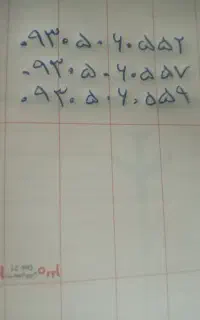 ۰۹۳۰۵۰۶۰۵۵۲
۰۹۳۰۵۰۶۰۵۵۷
۰۹۳۰۵۰۶۰۵۵۹